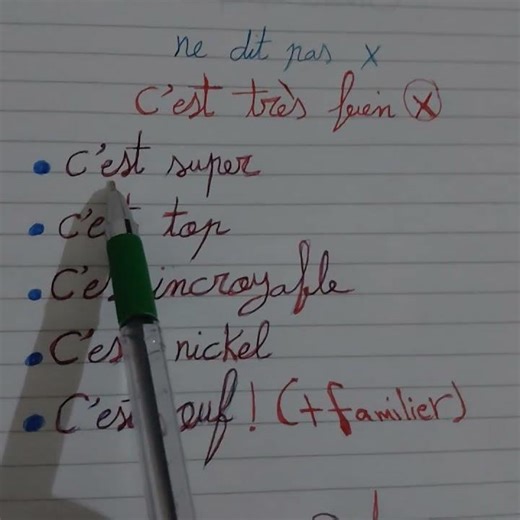 ne dit pas x
C'est très bien x
• C'est super
• C'est top
• C'est incroyable
• C'est nickel
• C'est ouf ! (+ familier)